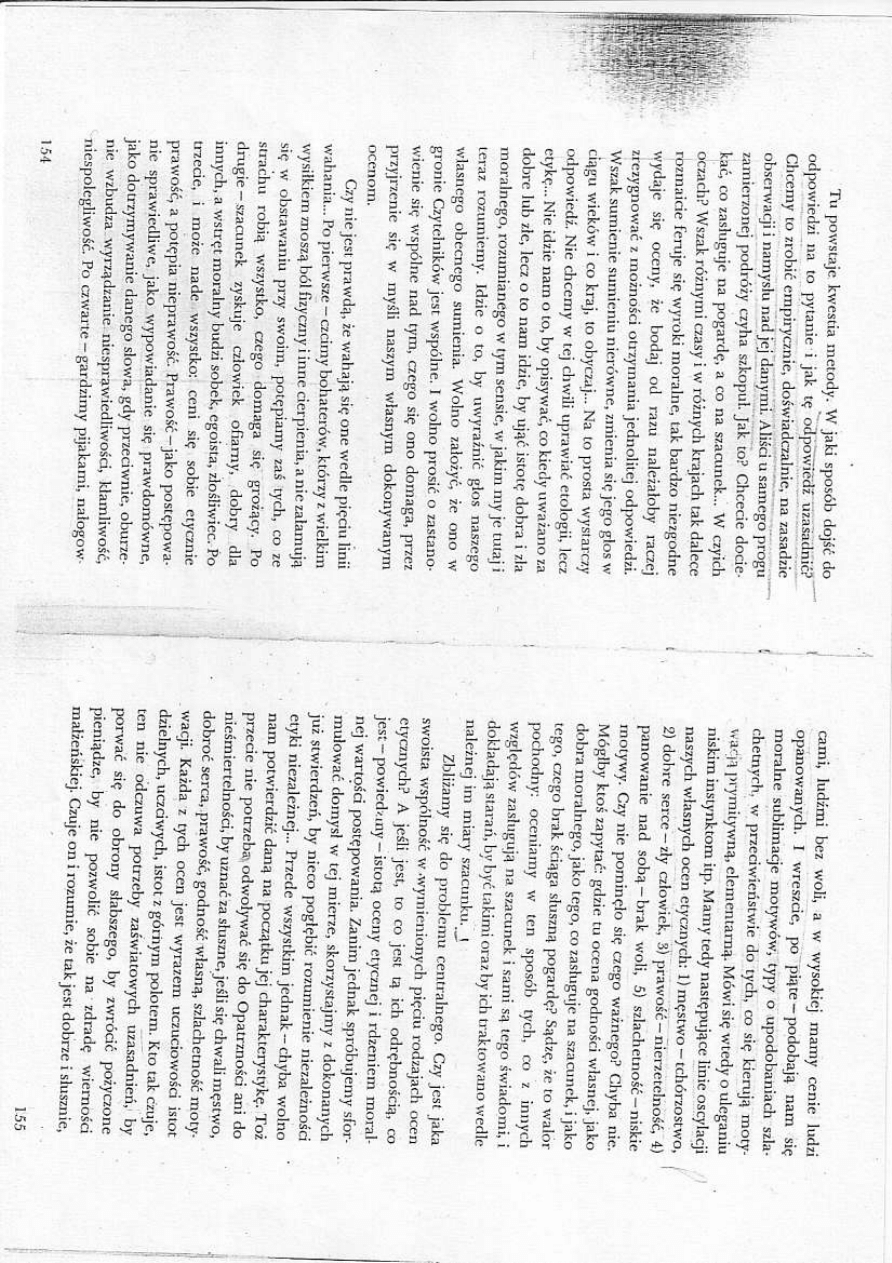 Tu powstaje kwestia metody. W jaki sposób dojść do
odpowiedzi na to pytanie i jak tę odpowiedź uzasadnić?
Chcemy to zrobić empirycznie, doświadczalnie, na zasadzie
obserwacji i namysłu nad jej danymi. Aliści u samego progu
zamierzonej podróży czyha szkopuł. Jak to? Chcecie docie-
kać, co zasługuje na pogardę, a co na szacunek... W czyich
oczach? Wszak różnymi czasy i w różnych krajach tak dalece
rozmaicie feruje się wyroki moralne, tak bardzo niezgodne
wydaje się oceny, że bodaj od razu należałoby raczej
zrezygnować z możności otrzymania jednolitej odpowiedzi.
Wszak sumienie sumieniu nierówne, zmienia się jego głos w
ciągu wieków i co kraj, to obyczaj... Na to prosta wystarczy
odpowiedź. Nie chcemy w tej chwili uprawiać etologii, lecz
etykę... Nie idzie nam o to, by opisywać, co kiedy uważano za
dobre lub złe, lecz o to nam idzie, by ująć istotę dobra i zła
moralnego, rozumianego w tym sensie, w jakim my je tutaj i
teraz rozumiemy. Idzie o to, by uwyraźnić głos naszego
własnego obecnego sumienia. Wolno założyć, że ono w
gronie Czytelników jest wspólne. I wolno prosić o zastano-
wienie się wspólne nad tym, czego się ono domaga, przez
przyjrzenie się w myśli naszym własnym dokonywanym
ocenom.
Czy nie jest prawdą, że wahają się one wedle pięciu linii
wahania... Po pierwsze – czcimy bohaterów, którzy z wielkim
wysiłkiem znoszą ból fizyczny i inne cierpienia, a nie załamują
się w obstawaniu przy swoim, potępiamy zaś tych, co ze
strachu robią wszystko, czego domaga się grożący. Po
drugie – szacunek zyskuje człowiek ofiarny, dobry dla
innych, a wstręt moralny budzi sobek, egoista, złośliwiec. Po
trzecie, i może nade wszystko: ceni się sobie etycznie
prawość, a potępia nieprawość. Prawość – jako postępowa-
nie sprawiedliwe, jako wypowiadanie się prawdomówne,
jako dotrzymywanie danego słowa, gdy przeciwnie, oburze-
nie wzbudza wyrządzanie niesprawiedliwości, kłamliwość,
niespolegliwość. Po czwarte – gardzimy pijakami, nałogow-
154
cami, ludźmi bez woli, a w wysokiej mamy cenie ludzi
opanowanych. I wreszcie, po piąte – podobają nam się
moralne sublimacje motywów, typy o upodobaniach szla-
chetnych, w przeciwieństwie do tych, co się kierują moty-
wacją prymitywną, elementarną. Mówi się wtedy o uleganiu
niskim instynktom itp. Mamy tedy następujące linie oscylacji
naszych własnych ocen etycznych: 1) męstwo – tchórzostwo,
2) dobre serce – zły człowiek, 3) prawość – nierzetelność, 4)
panowanie nad sobą – brak woli, 5) szlachetność – niskie
motywy. Czy nie pominęło się czego ważnego? Chyba nie.
Mógłby ktoś zapytać: gdzie tu ocena godności własnej, jako
dobra moralnego, jako tego, co zasługuje na szacunek, i jako
tego, czego brak ściąga słuszną pogardę? Sądzę, że to walor
pochodny: oceniamy w ten sposób tych, co z innych
względów zasługują na szacunek i sami są tego świadomi, i
dokładają starań, by być takimi oraz by ich traktowano wedle
należnej im miary szacunku.
Zbliżamy się do problemu centralnego. Czy jest jaka
swoista wspólność w wymienionych pięciu rodzajach ocen
etycznych? A jeśli jest, to co jest tą ich odrębnością, co
jest – powiedzmy – istotą oceny etycznej i rdzeniem moral-
nej wartości postępowania. Zanim jednak spróbujemy sfor-
mułować domysł w tej mierze, skorzystajmy z dokonanych
już stwierdzeń, by nieco pogłębić rozumienie niezależności
etyki niezależnej... Przede wszystkim jednak – chyba wolno
nam potwierdzić daną na początku jej charakterystykę. Toż
przecie nie potrzeba odwoływać się do Opatrzności ani do
nieśmiertelności, by uznać za słuszne, jeśli się chwali męstwo,
dobroć serca, prawość, godność własną, szlachetność moty-
wacji. Każda z tych ocen jest wyrazem uczuciowości istot
dzielnych, uczciwych, istot z górnym polotem. Kto tak czuje,
ten nie odczuwa potrzeby zaświatowych uzasadnień, by
porwać się do obrony słabszego, by zwrócić pożyczone
pieniądze, by nie pozwolić sobie na zdradę wierności
małżeńskiej. Czuje on i rozumie, że tak jest dobrze i słusznie,
155